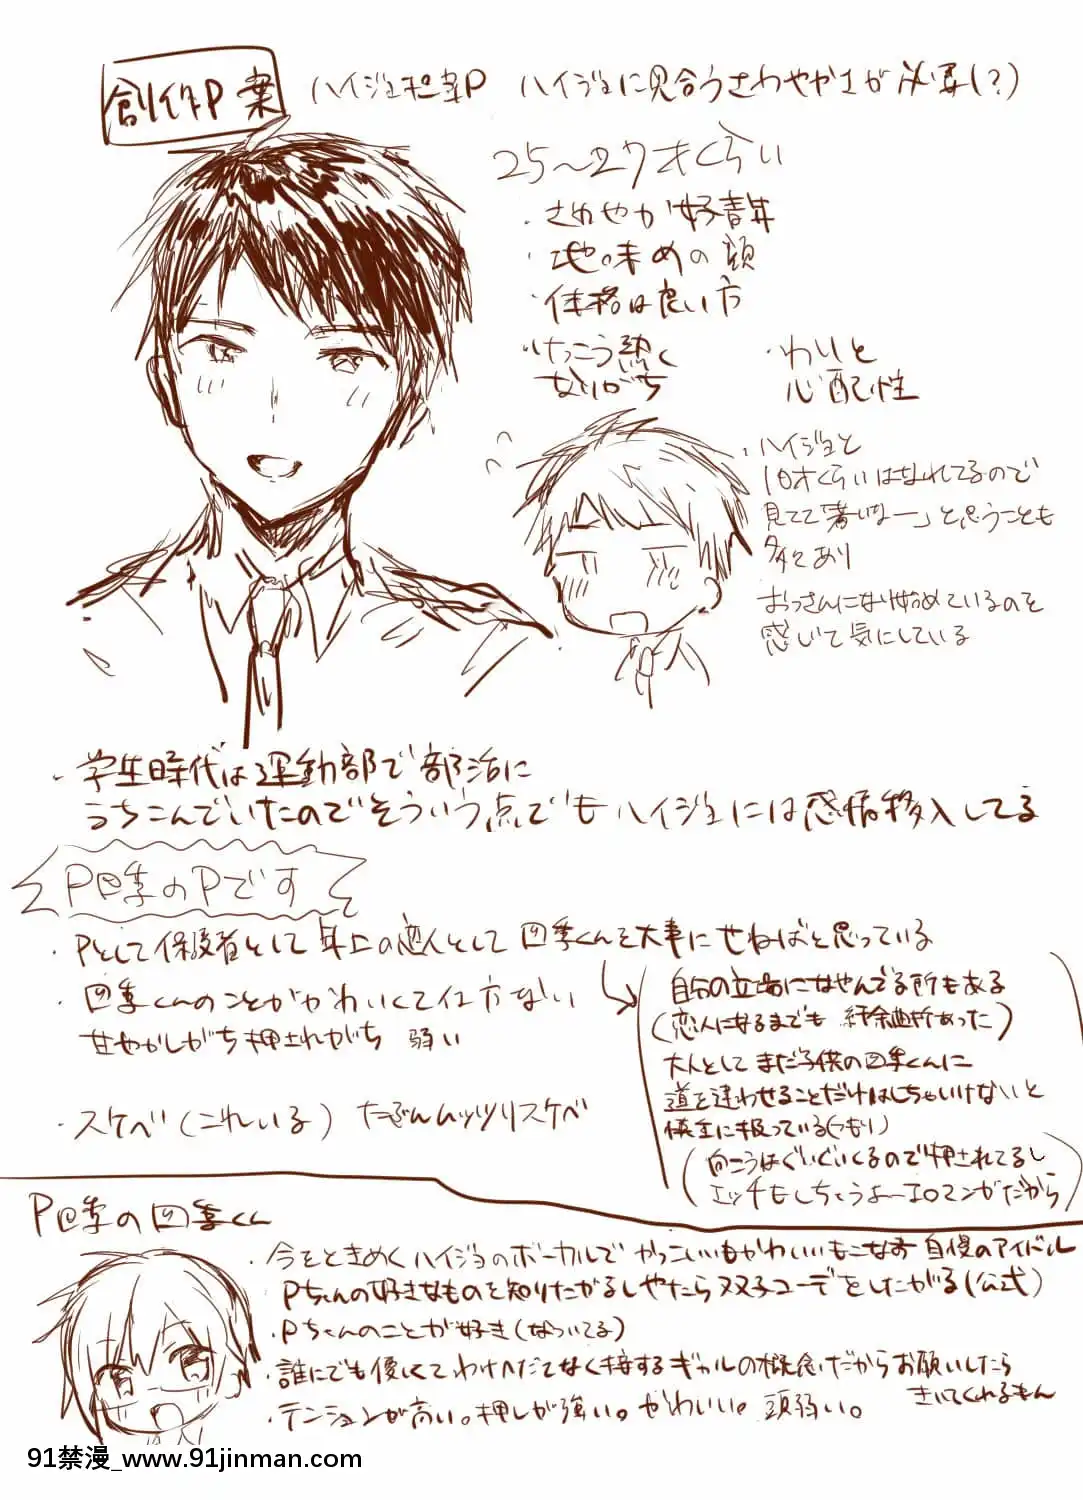 創作P案
ハイジョ担当P ハイジョに見合うさわやかさが必要(?)
25〜27才くらい
・さわやか好青年
・地味めの顔
・体格は良い方
・けっこう熱く
なりがち
・わりと
心配性
・ハイジョと
10才くらいはなれてるので
見てて「若いなー」と思うことも
多々あり
おっさんになり始めているのを
感じて気にしている
・学生時代は運動部で部活に
うちこんでいたのでそういう点でもハイジョには感情移入してる
P四季のPです
・Pとして保護者として年上の恋人として四季くんを大事にせねばと思っている
・四季くんのことがかわいくて仕方ない
甘やかしがち押されがち 弱い
・スケベ(これいる) たぶんムッツリスケベ
自分の立場になやんでる所もある
(恋人になるまでも紆余曲折あった)
大人としてまだ子供の四季くんに
道を違わせることだけはしちゃいけないと
慎重に扱っている(つもり)
(向こうはぐいぐいくるので押されてるし
エッチもしちゃうよーエロマンガだから)
P四季の四季くん
・今をときめくハイジョのボーカルでかっこいいもかわいいもこなす自慢のアイドル
Pちゃんの好きなものを知りたがるしやたら双子コーデをしたがる(公式)
・Pちゃんのことが好き(なついてる)
・誰にでも優しくてわけへだてなく接するギャルの概念だからお願いしたら
きいてくれるもん
・テンションが高い。押しが強い。かわいい。頭弱い。
91禁漫_www.91jinman.com